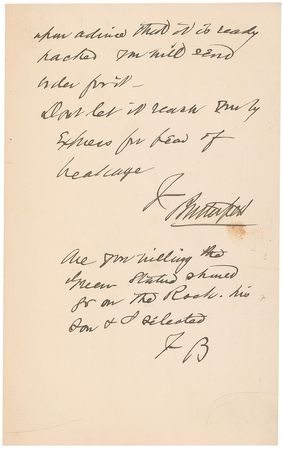 upon advice that it is ready
packed you will send
order for it —
Dont let it reach you by
Express for fear of
breakage
F Butterfield
Are you willing the
Green Statue should
go on the Rock. his
son & I selected
F B